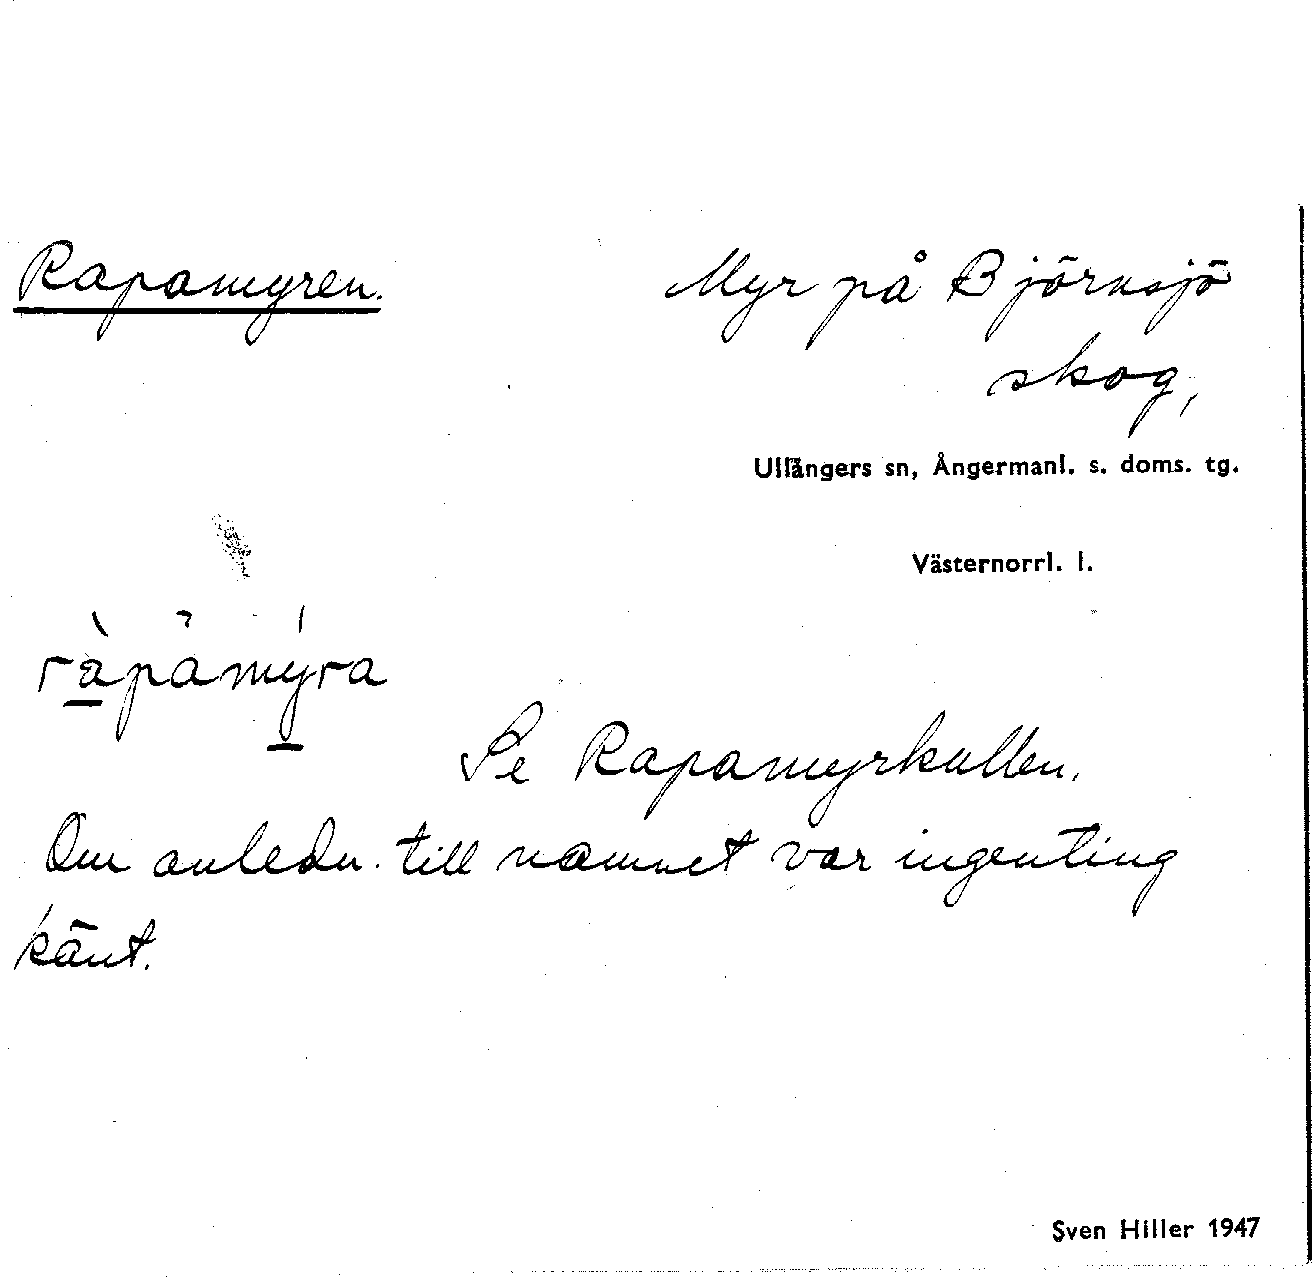 Rapamyren.
Myr på Björnsjö
skog,
Ullångers sn, Ångermanl. s. doms. tg.
Västernorrl. l.
ràpåmýra
Se Rapamyrkullen.
Om anledn. till namnet var ingenting
känt.
Sven Hiller 1947